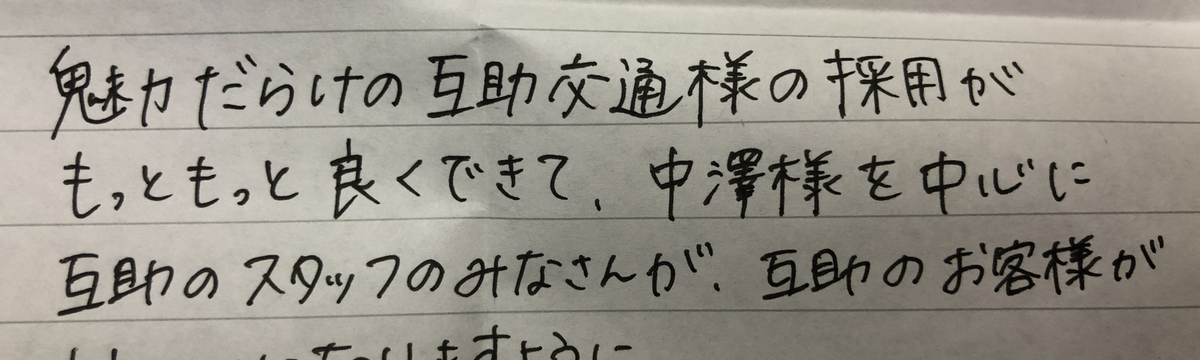 魅力だらけの互助交通様の採用が
もっともっと良くできて、中澤様を中心に
互助のスタッフのみなさんが、互助のお客様が
なりますように